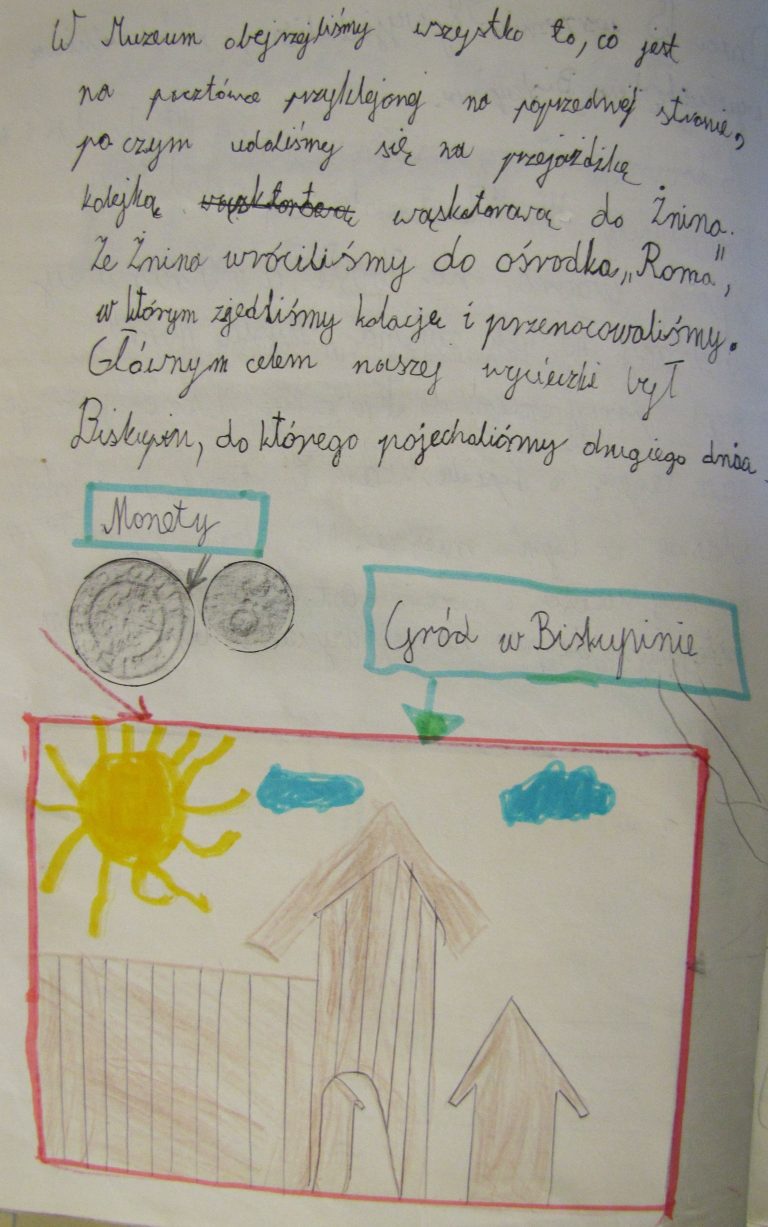 W Muzeum obejrzeliśmy wszystko to, co jest
na pocztówce przyklejonej na poprzedniej stronie,
po czym udaliśmy się na przejażdżkę
kolejką wąsktortową wąskotorową do Żnina.
Ze Żnina wróciliśmy do ośrodka „Roma",
w którym zjedliśmy kolację i przenocowaliśmy.
Głównym celem naszej wycieczki był
Biskupin, do którego pojechaliśmy drugiego dnia.
Monety
Gród w Biskupinie